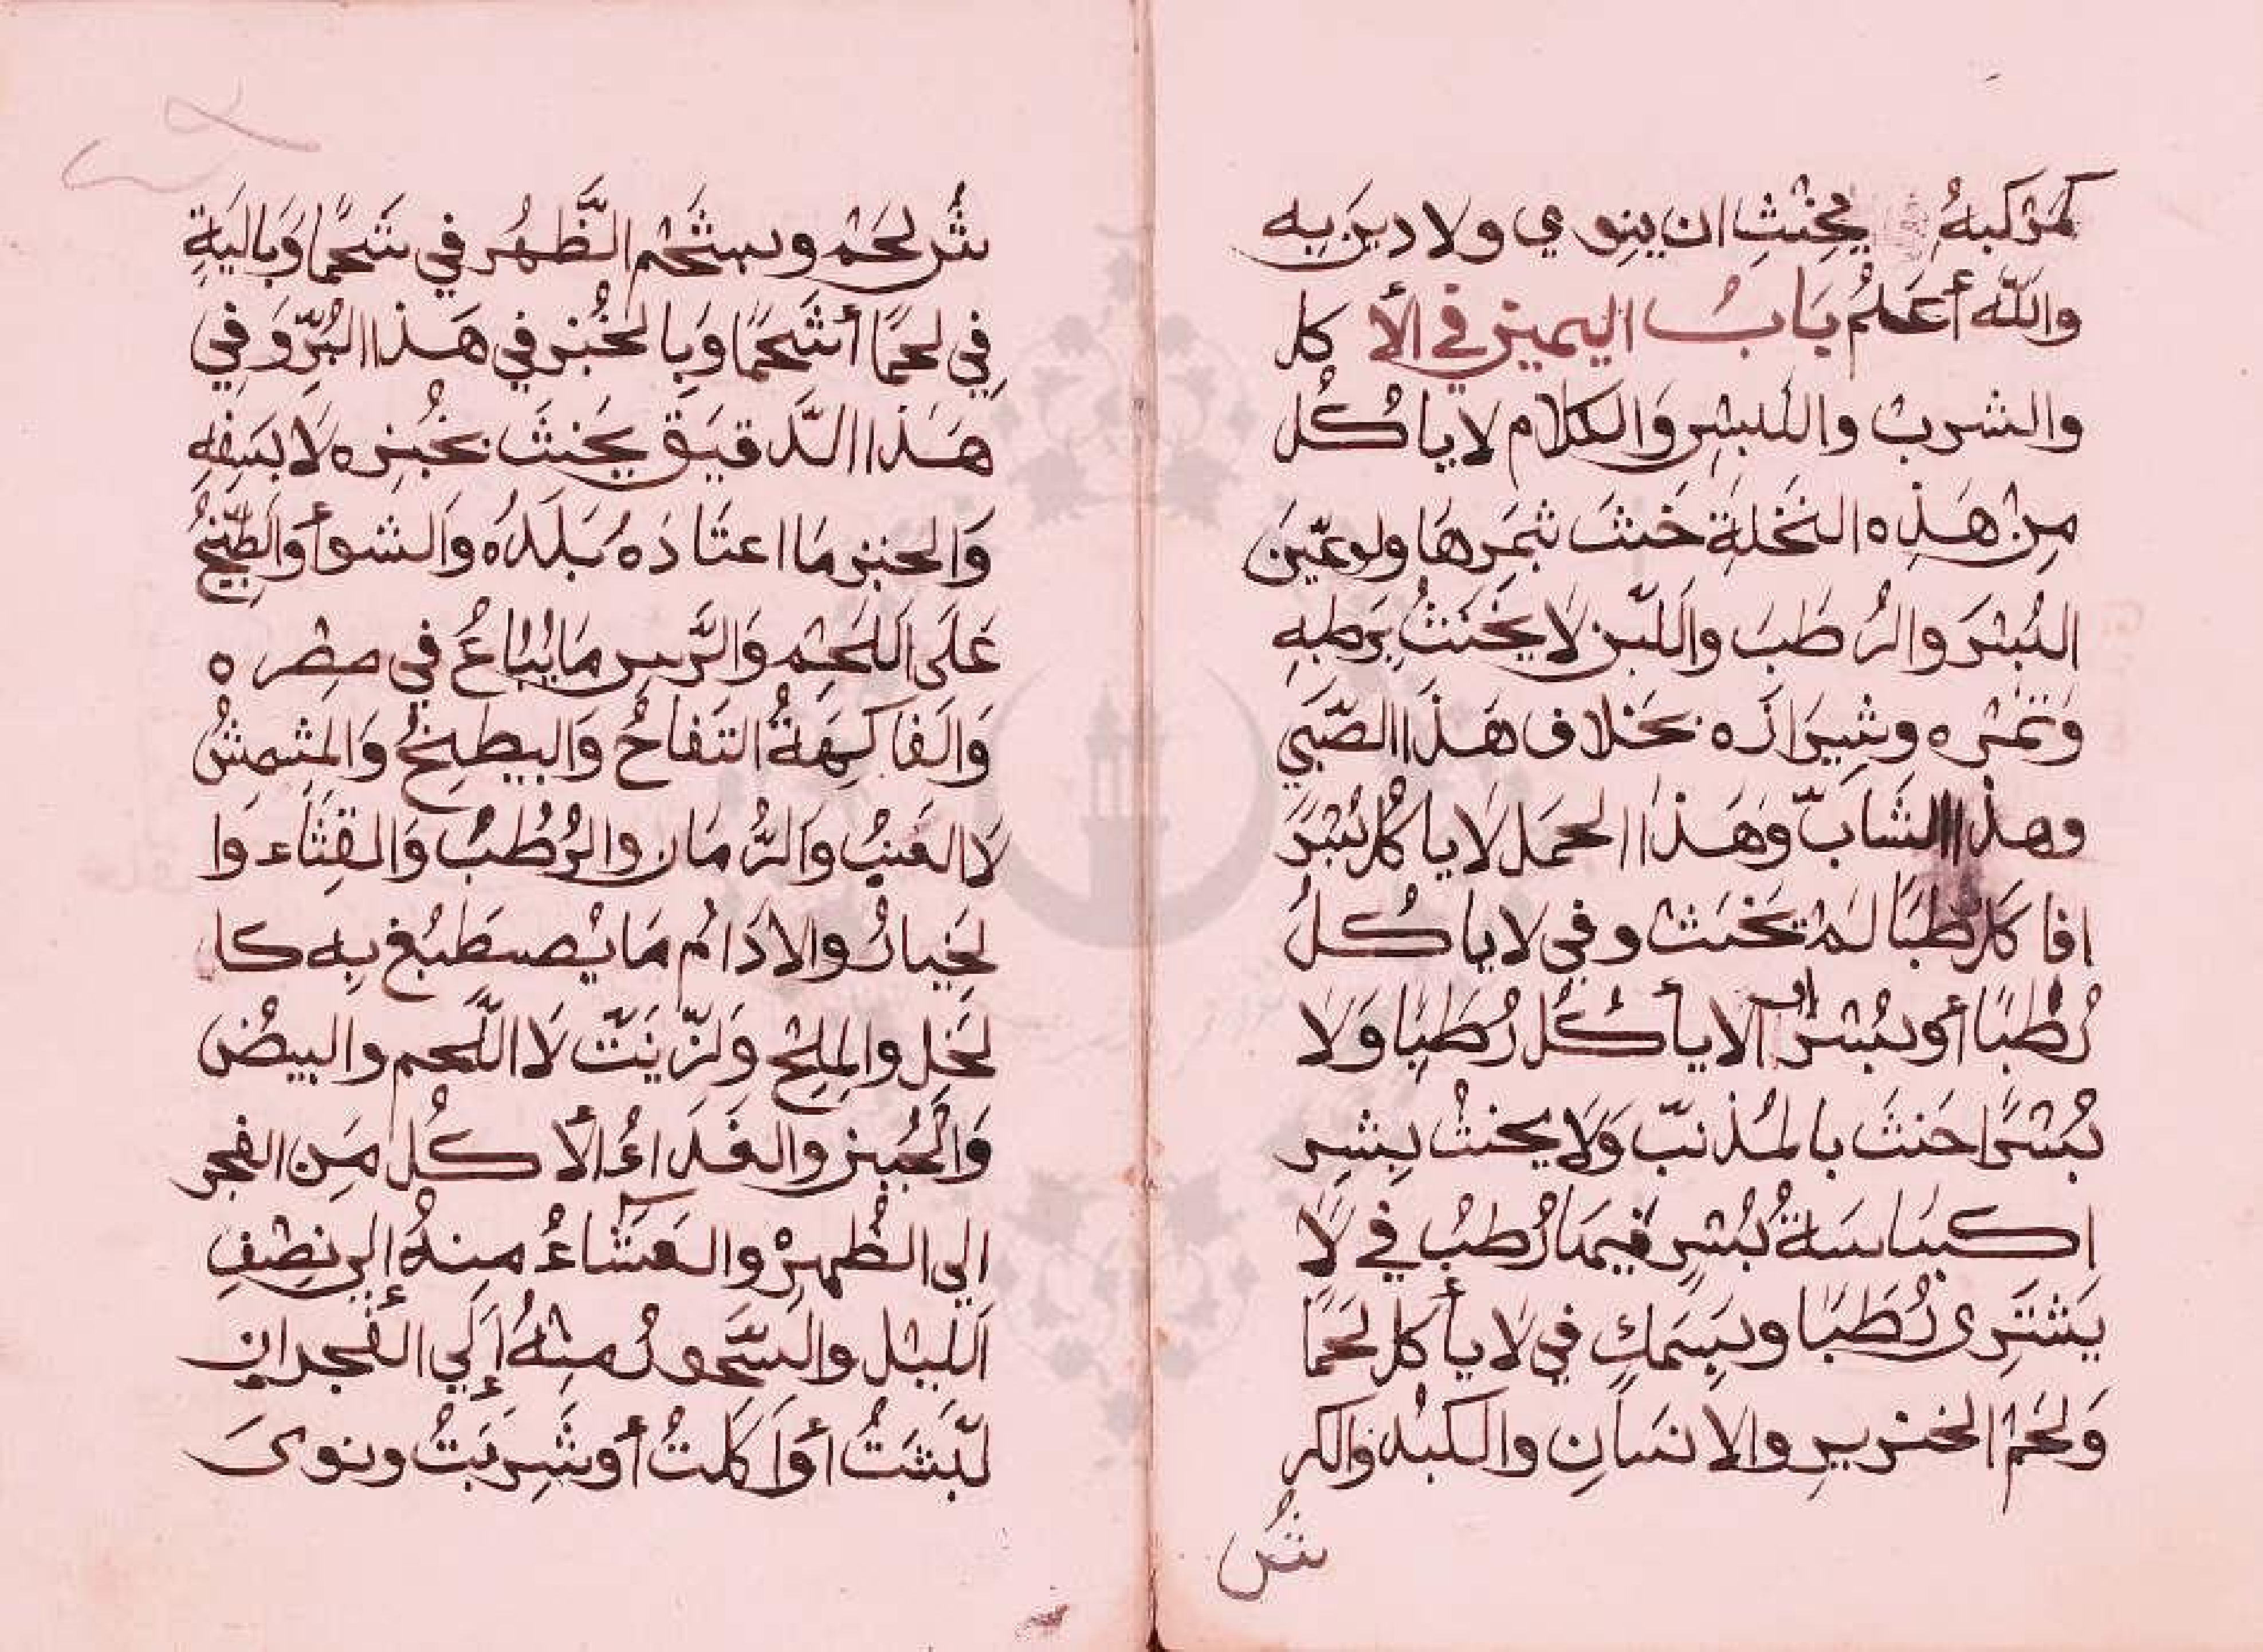 كمركبه يحنث ان ينوي ولا دين به
والله أعلم باب اليمين في الأ كل
والشرب واللبس والكلام لا ياكل
من هذه النخلة حنث بثمرها ولو عين
البسر والرطب واللبن لا يحنث برطبه
وتمره وشيرازه بخلاف هذا الصبي
وهذا الشاب وهذا الحمل لا ياكل بسر
افا كل رطبا لم يحنث وفي لا ياكل
رطبا أو بسرا لا يأكل رطبا ولا
بسرا حنث بالمذنب ولا يحنث بشر
ا كباسة بسر فيها رطب في لا
يشترى رطبا وبسمك في لا يأكل لحما
ولحم الخنزير والانسان والكبد والكر
ش
ش لحم وبشحم الظهر في شحما وبالية
في لحما أشحما وبالخبز في هذا البر وفي
هذا الدقيق يحنث بخبزه لا بسفه
والخبز ما اعتاده بلده والشوأ والطبيخ
على اللحم والرس ما يباع في مصره
والفاكهة التفاح والبطيخ والمشمش
لا العنب والرمان والرطب والقثاء وا
لخيار والادام ما يصطبغ به كا
لخل والملح ولزيت لا اللحم والبيض
والجبز والغداء الأ كل من الفجر
الي الظهر والعشاء منه إلى نصف
الليل والسحور منه إلي الفجر ان
لبست أو اكلت أو شربت ونوى